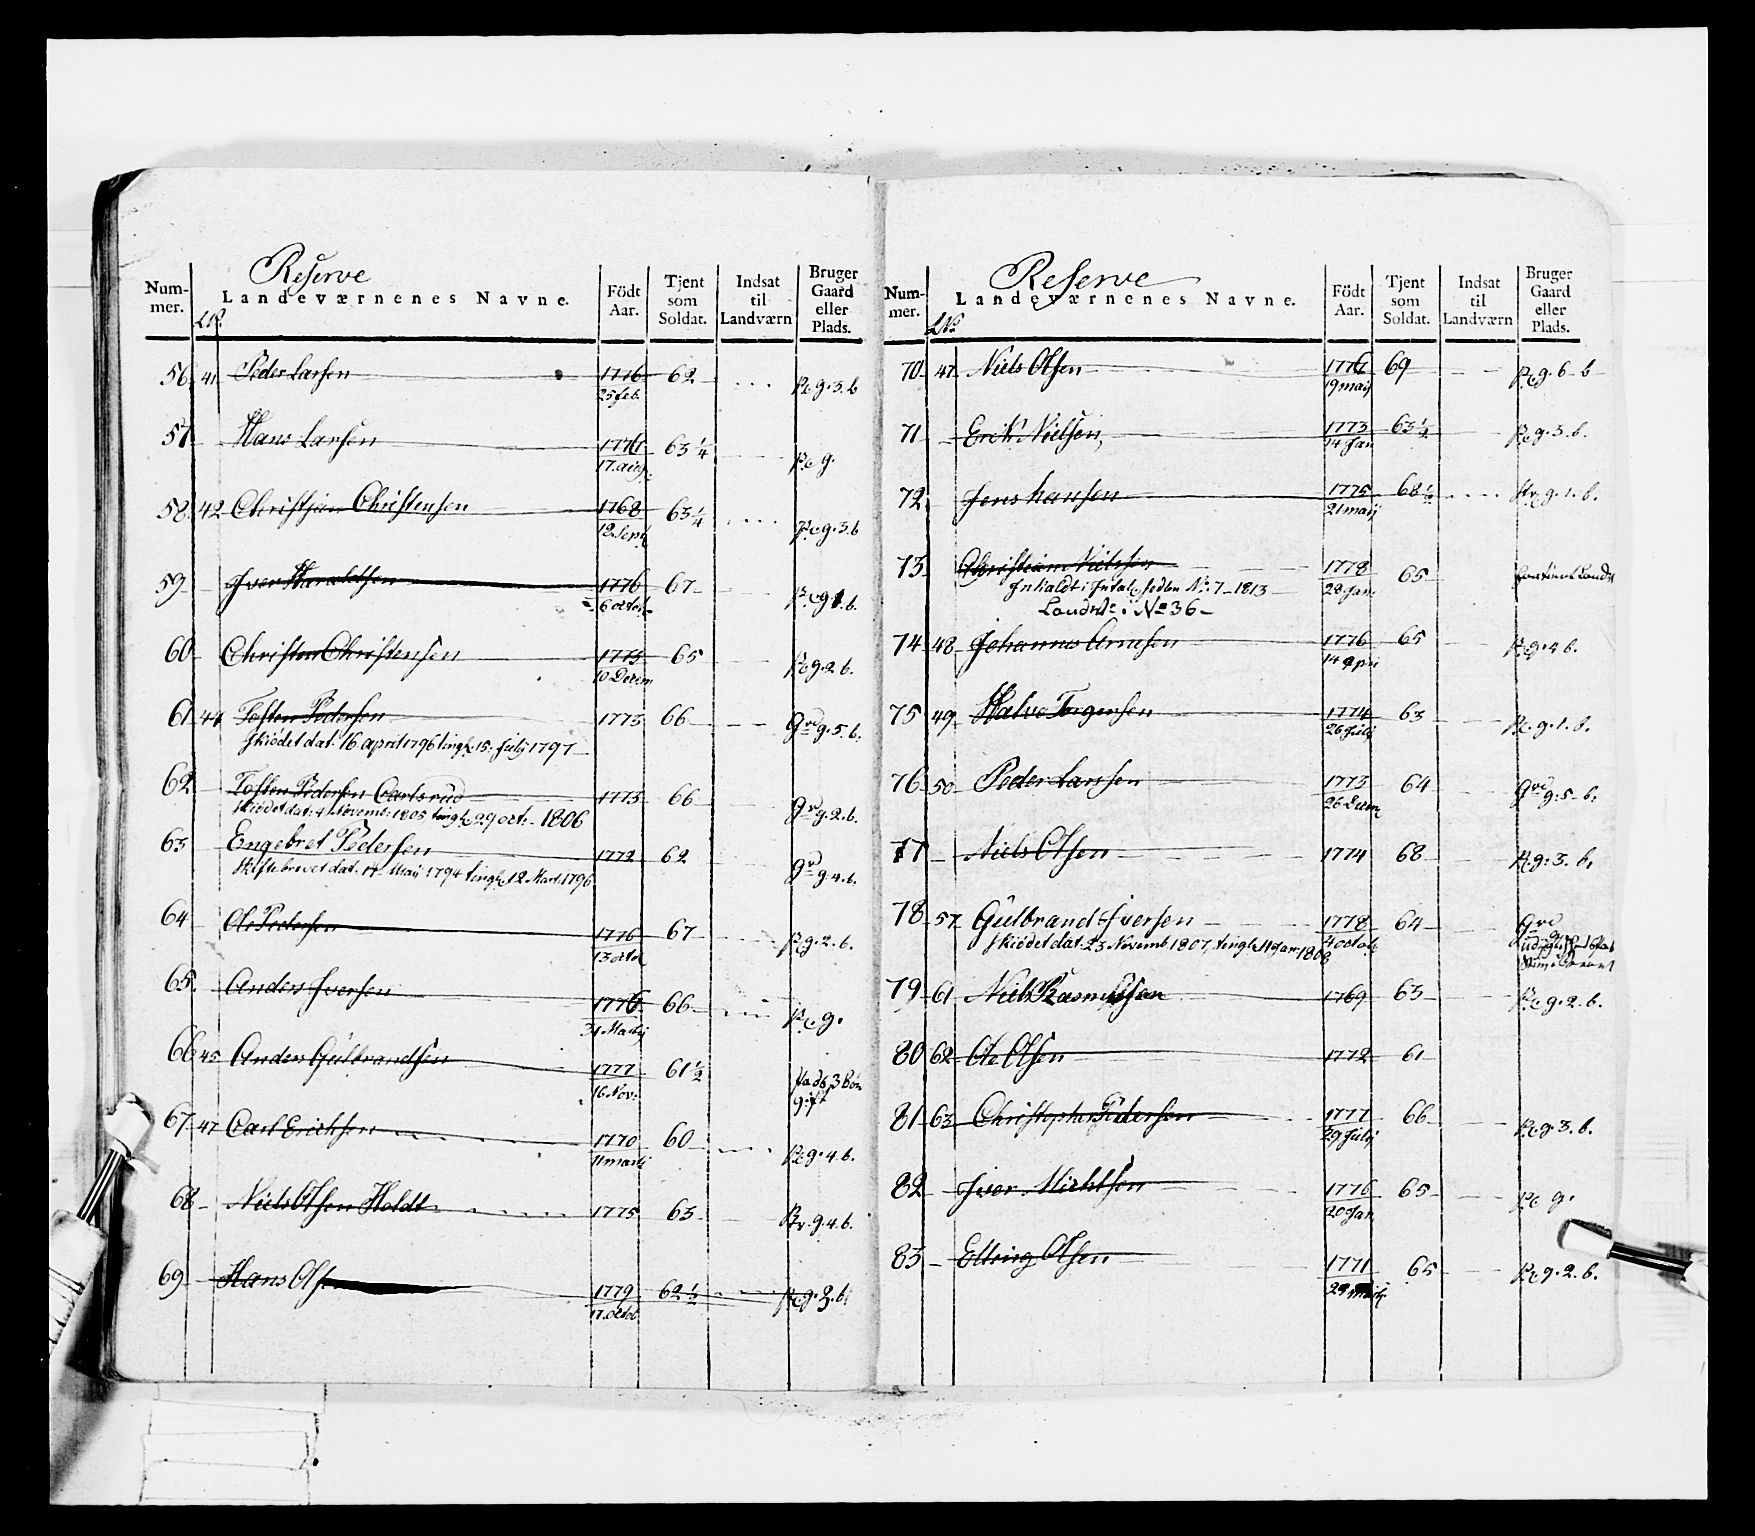 Reserve
Num-
mer.
LNo.
Landeværnenes Navne.
Födt
Aar.
Tjent
som
Soldat.
Indsat
til
Landværn
Bruger
Gaard
eller
Plads.
56 41 Peder Larsen 1776 62 Pl. g. 3. b
25 feb.
57 Hans Larsen 1776 63 1/4 Pl. g.
17. aug.
58 42 Christian Christensen 1768 63 1/4 Pl. g. 3. b
12 Sept
59 Iver Haraldsen 1776 67 Pl. g. 1. b.
6 octob.
60 Christen Christensen 1775 65 Pl. g. 2. b.
10 Decem
61 44 Tosten Pedersen 1773 66 Grd g. 5. b.
Skiödet dat. 16 april 1796 tingl. 15. July 1797
62 Tosten Pedersen Carlsrud 1773 66 Grd g. 2. b.
Skiödet dat: 4 Novemb: 1805 tingl. 29 oct. 1806
63 Engebret Pedersen 1772 62 Grd g. 4. b.
Skiftebrevet dat. 14 Maij 1794 tingl. 12 Mart. 1796
64 Ole Pedersen 1776 67 Pl. g. 2. b.
13 octob
65. Anders Iversen 1776 66 Pl. g.
31 Martij
66 45 Anders Gulbrandsen 1777 61 1/2
16 Nov: gift
67 47 Carl Erichsen 1770 60 Pl. g. 4. b.
11 martij
68 Niels Olsen Holdt 1775 63 g. 4. b.
69 Hans Olsen 1779 62 1/2 Pl. g. 2. b.
17. octob
Reserve
Num-
mer.
LNo
Landeværnenes Navne.
Födt
Aar.
Tjent
som
Soldat.
Indsat
til
Landværn
Bruger
Gaard
eller
Plads.
70 47 Niels Olsen 1776 69 Pl. g. 6 b
19 maij
71 Erik Nielsen 1773 63 1/2 Pl. g. 3. b.
14 Jan
72 Jens hansen 1775 68 1/2 g. 1. b.
21 maij
73 Christian Nielsen 1778 65
Inkaldt i No. 7 - 1813 28 Jan.
Landv. No 36
74 48 Johannes Arnesen 1776 65 Pl. g. 4 b.
14 apri
75 49 Halvo Torgersen 1774 63 Pl. g. 1. b.
26 Julij
76 50 Peder Larsen 1773 64 Grd g: 5 b:
26 Decm
77 Niels Olsen 1774 68 Pl. g: 3. b.
78 57 Gulbrand Iversen 1778 64 Grd
Skiödet dat. 23 Novemb 1807, tingl. 11 Jan: 1808 4 octob
79 61 Niels Rasmussen 1769 63 Pl. g. 2. b.
80 62 Ole Olsen 1772 61
81 63 Christopher Pedersen 1777 66 Pl. g. 3. b.
29 Julij
82 Iver Michelsen 1776 65 Pl. g.
20 Jan
83 Elling Olsen 1771 65 Pl. g. 2. b.